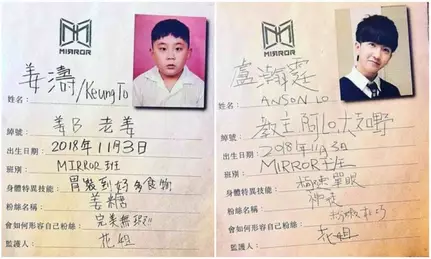 MIRROR
姜濤/Keung To
姓名：
綽號：姜B 老姜
出生日期：2018年11月3日
班別：MIRROR班
身體特異技能：胃裝到好多食物
粉絲名稱：姜糖
會如何形容自己粉絲：完美無瑕!!
監護人：花姐
MIRROR
盧瀚霆
姓名：ANSON LO
綽號：教主 阿Lo
出生日期：2018年11月3日
班別：MIRROR班
身體特異技能：單眼
粉絲名稱：神徒
會如何形容自己粉絲：
監護人：花姐